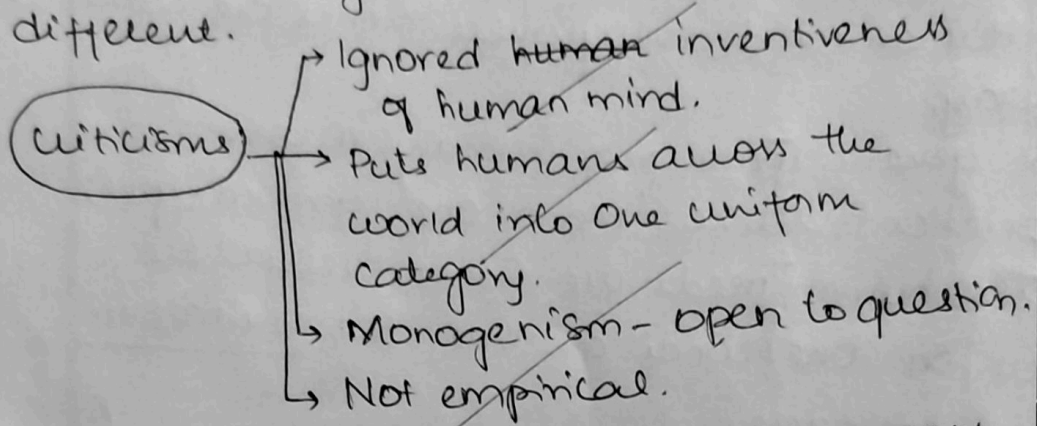 different.
→ Ignored human inventiveness
of human mind.
Criticisms → Puts humans across the
world into One uniform
category.
↳ Monogenism - open to question.
↳ Not empirical.